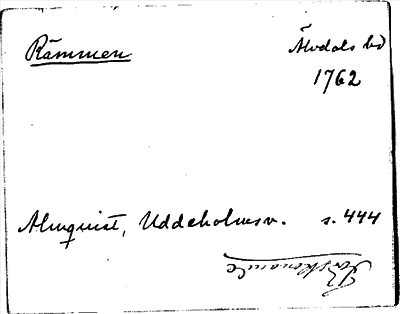 Rämmen
Älvdals hd
1762
Almquist, Uddeholmsv. s. 444